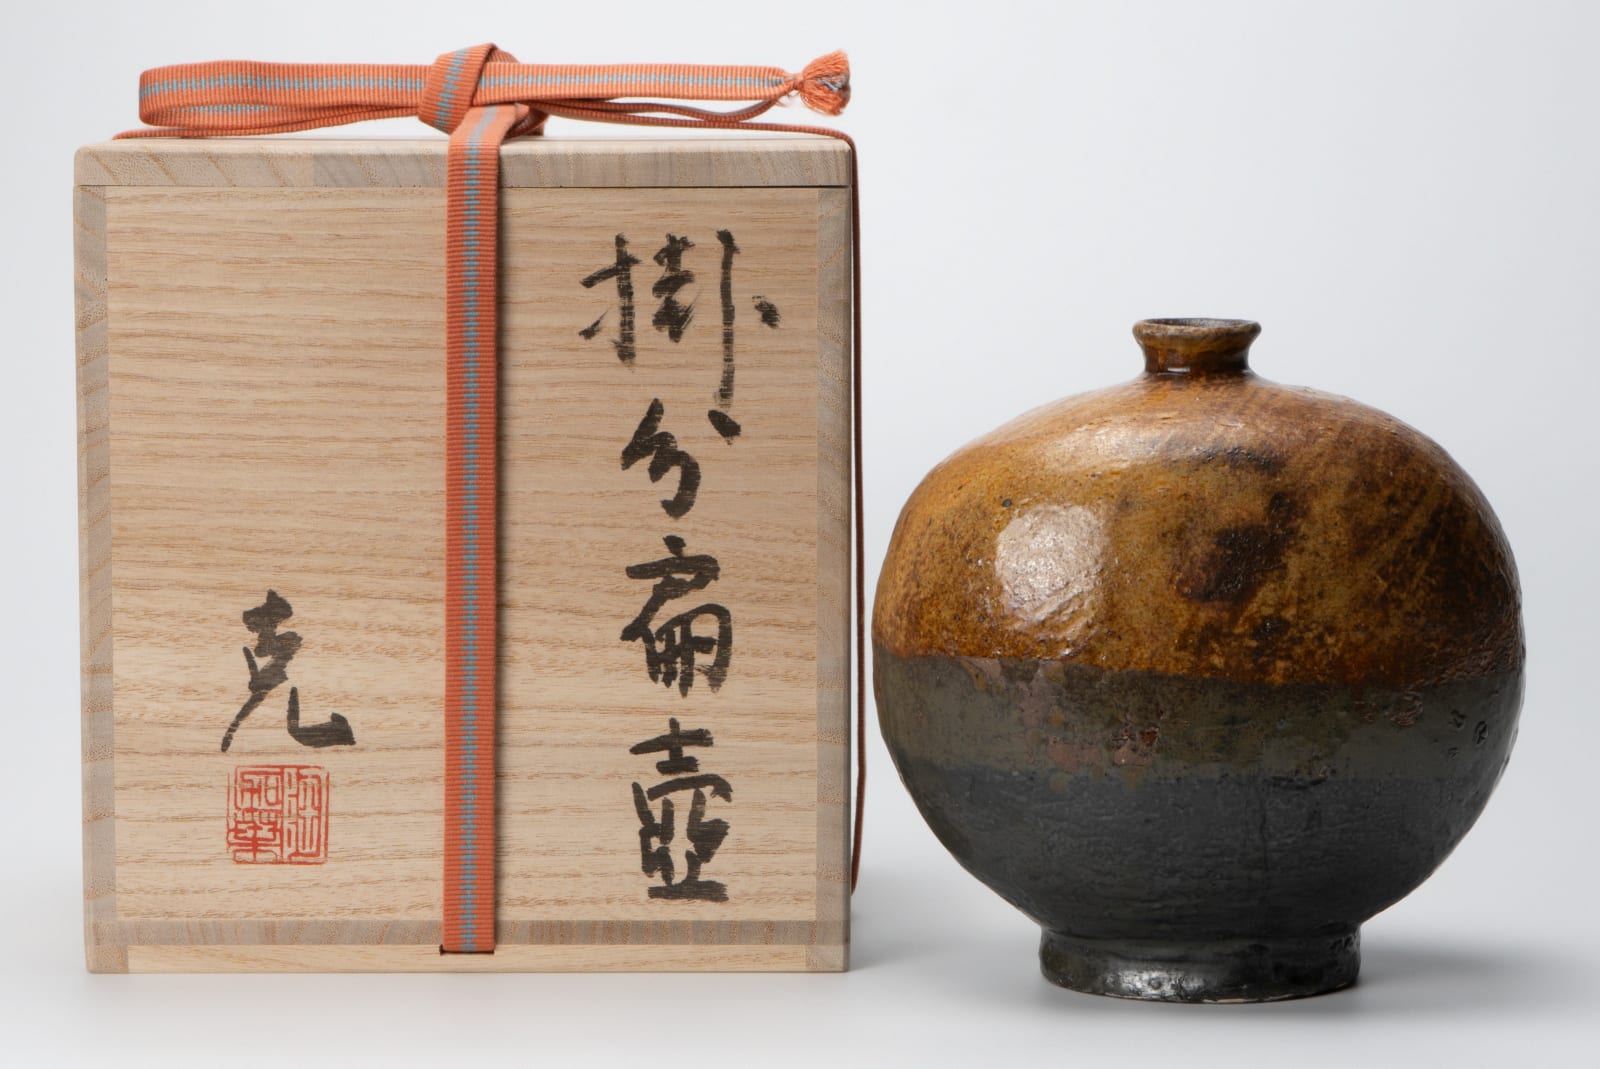 掛分扁壺
克